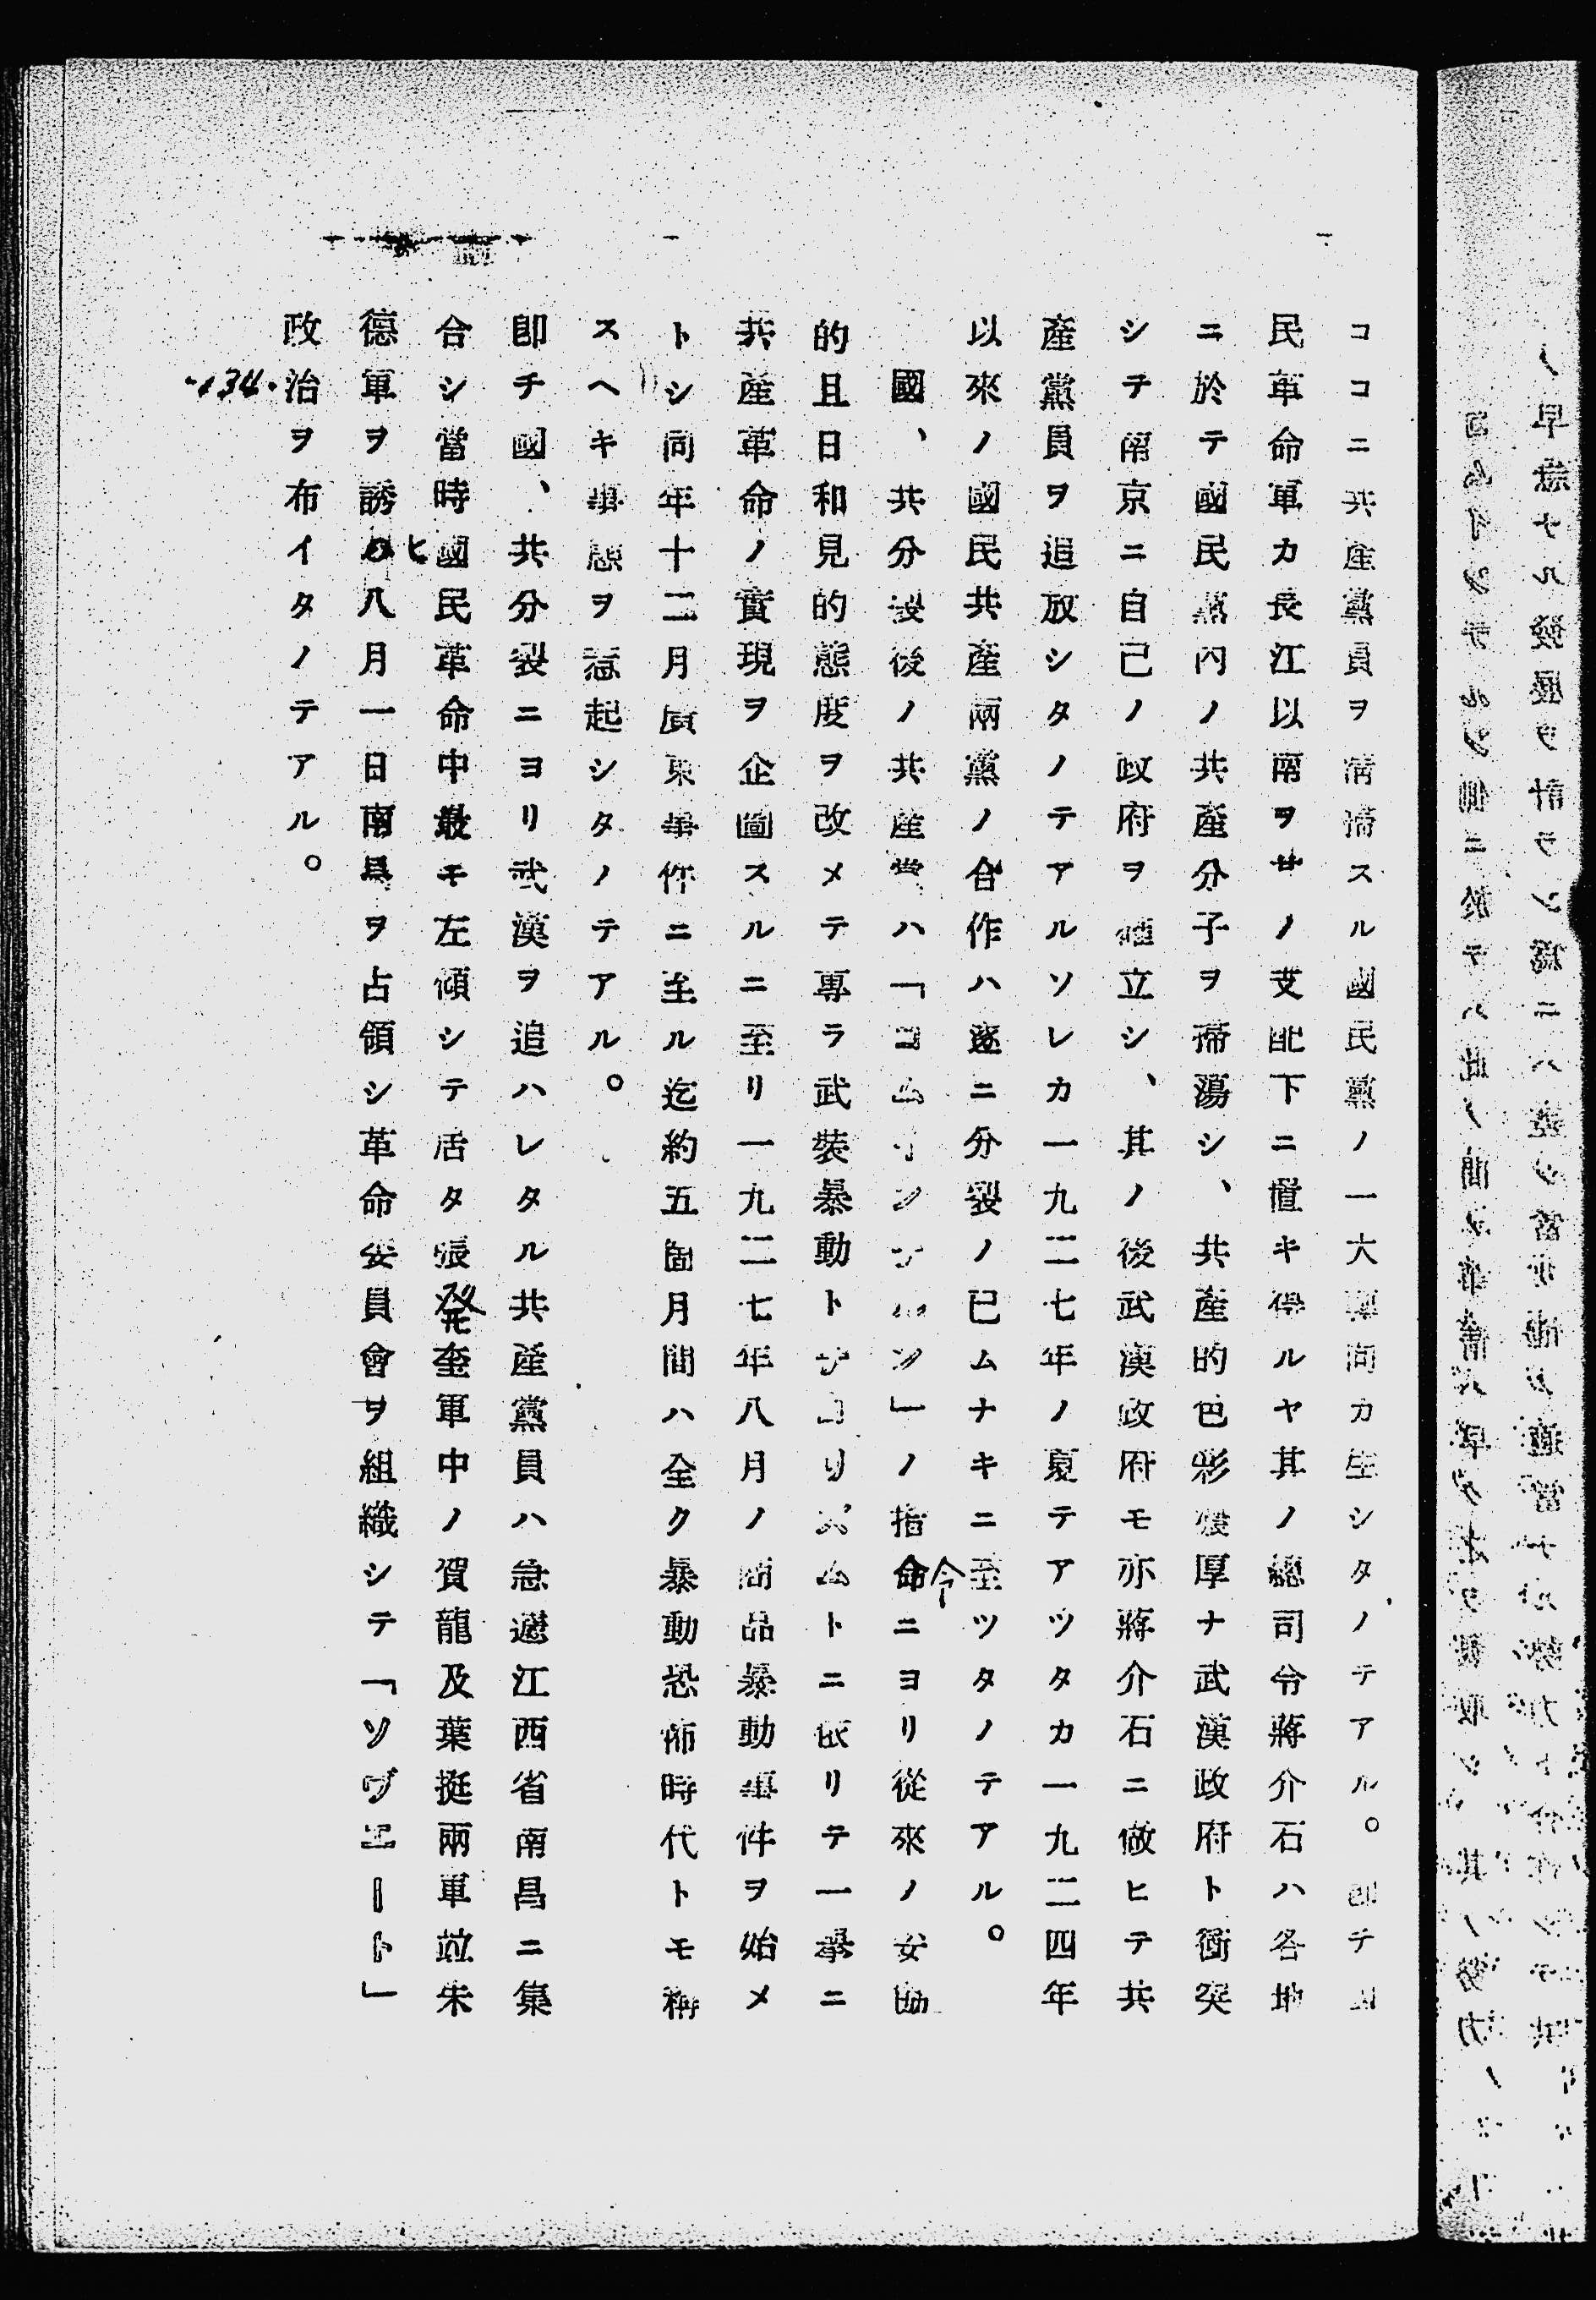 ココニ共産黨員ヲ清掃スル國民黨ノ一大傾向カ生シタノテアル。卽テ國
民革命軍カ長江以南ヲ其ノ支配下ニ置キ得ルヤ其ノ總司令蔣介石ハ各地
ニ於テ國民黨內ノ共產分子ヲ掃蕩シ、共產的色彩濃厚ナ武漢政府ト衝突
シテ南京ニ自己ノ政府ヲ樹立シ、其ノ後武漢政府モ亦蔣介石ニ倣ヒテ共
產黨員ヲ追放シタノテアルソレカ一九二七年ノ夏テアツタカ一九二四年
以來ノ國民共產兩黨ノ合作ハ遂ニ分裂ノ已ムナキニ至ツタノテアル。
國、共分裂後ノ共産黨ハ「コムインテルン」ノ指命令ニヨリ從來ノ妥協
的且日和見的態度ヲ改メテ專ラ武裝暴動トテロリズムトニ依リテ一擧ニ
共産革命ノ實現ヲ企圖スルニ至リ一九二七年八月ノ南昌暴動事件ヲ始メ
トシ同年十二月廣東事件ニ至ル迄約五箇月間ハ全ク暴動恐怖時代トモ稱
スヘキ事態ヲ惹起シタノテアル。
卽チ國、共分裂ニヨリ武漢ヲ追ハレタル共産黨員ハ急遽江西省南昌ニ集
合シ當時國民革命中最モ左傾シテ居タ張発奎軍中ノ賀龍及葉挺兩軍竝朱
德軍ヲ誘ヒ八月一日南昌ヲ占領シ革命委員會ヲ組織シテ「ソヴエート」
政治ヲ布イタノテアル。
-134-